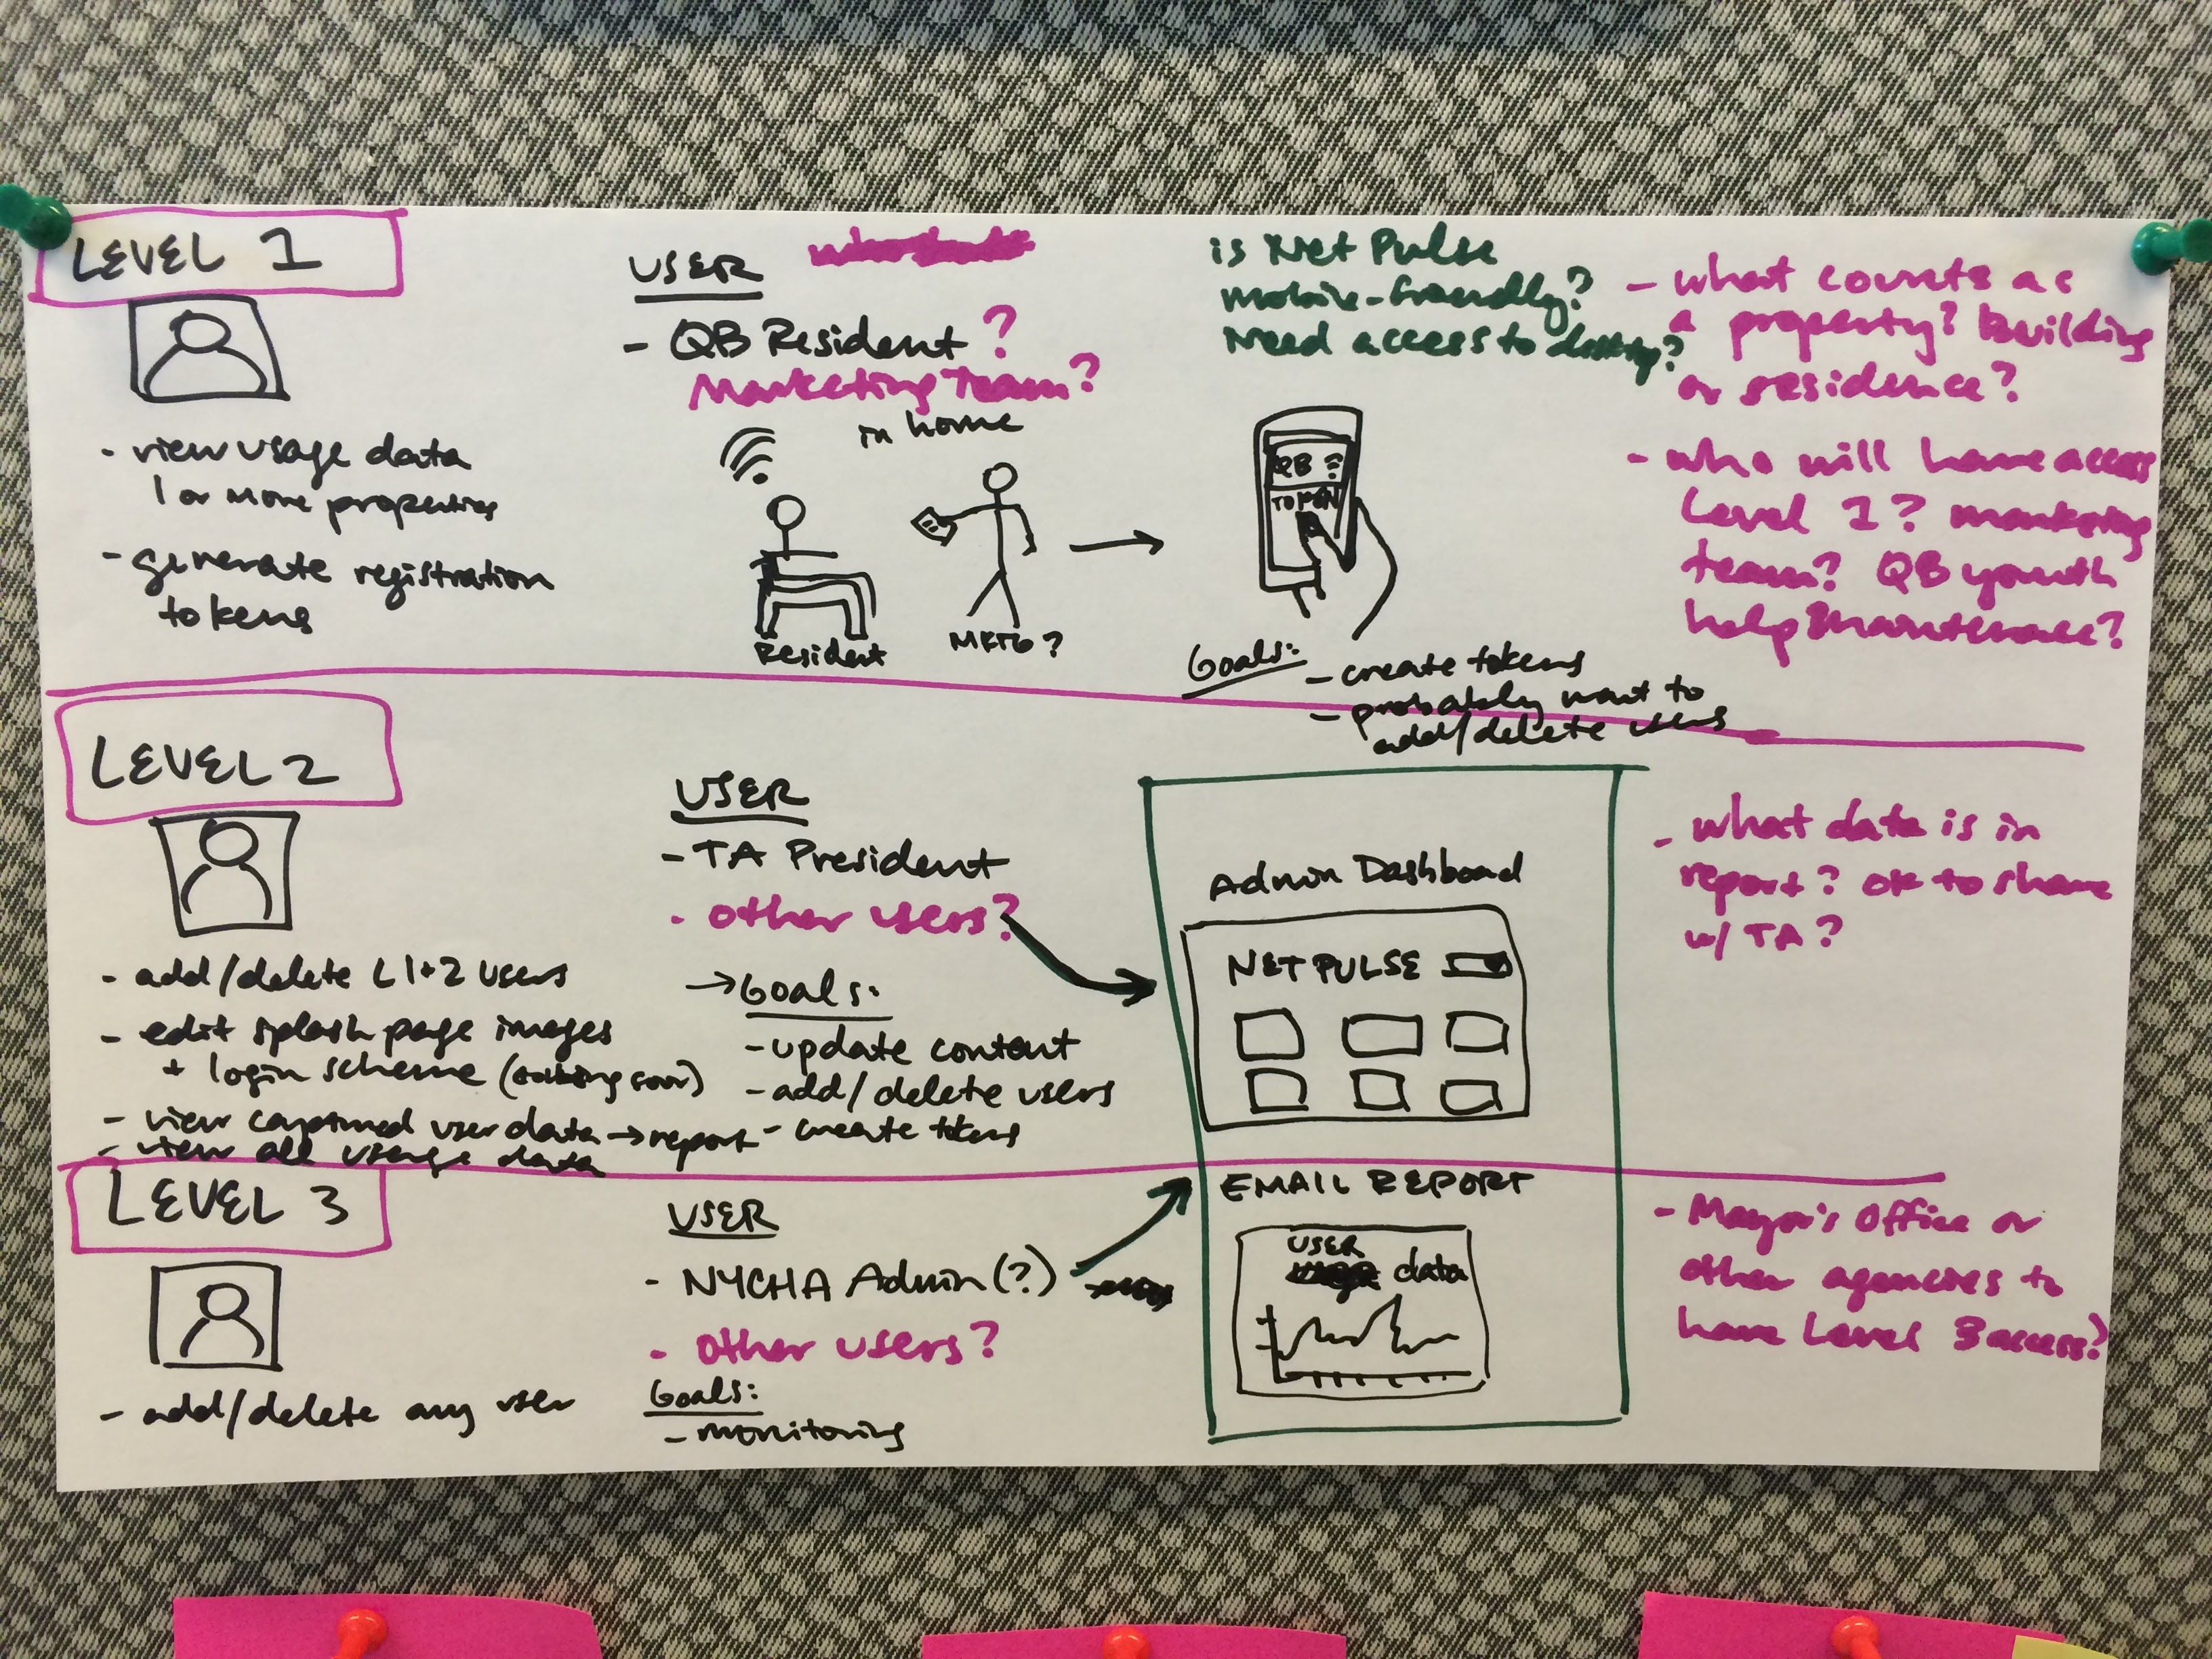 LEVEL 1
- view usage data
1 or more properties
- generate registration
tokens
USER
- QB Resident ?
Marketing Team?
in home
Resident
MKTG?
is Net Pulse
mobile-friendly?
Need access to
QB ?
TOKEN
Goals:
- create tokens
- probably want to
add/delete users
- what counts as
a property? building
or residence?
- who will have access
Level 1? marketing
team? QB youth
help maintenance?
LEVEL 2
- add/delete L1+2 users
- edit splash page images
+ login scheme
- view captured user data → report
- view all usage data
USER
- TA President
- other users?
→ Goals:
- update content
- add/delete users
- create tokens
Admin Dashboard
NETPULSE
- what data is in
report? OK to share
w/ TA?
LEVEL 3
- add/delete any user
USER
- NYCHA Admin (?)
- other users?
Goals:
- monitoring
EMAIL REPORT
USER
data
- Mayor's Office or
other agencies to
have Level 3 access?